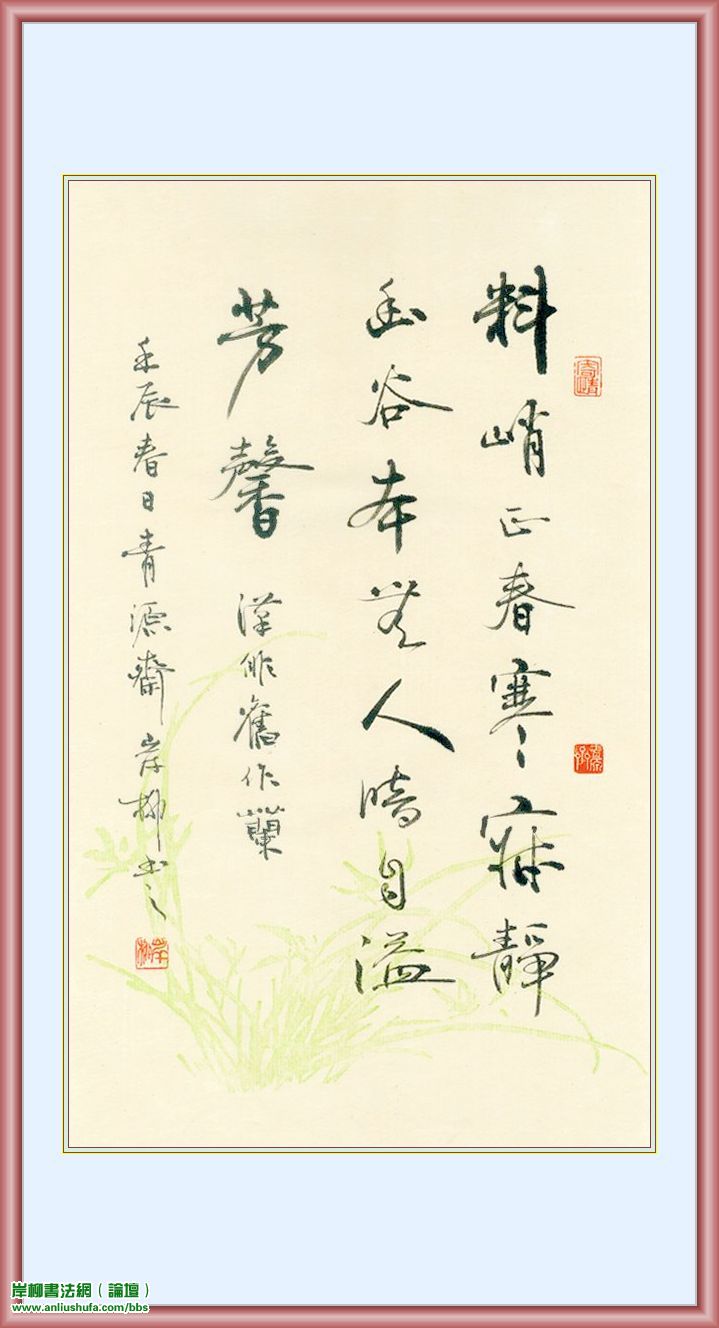 料峭正春寒寂靜
幽谷本無人暗自溢
芳馨 漢俳舊作蘭
壬辰春日青源齋岸柳书之
岸柳
岸柳書法網（論壇）
www.anliushufa.com/bbs